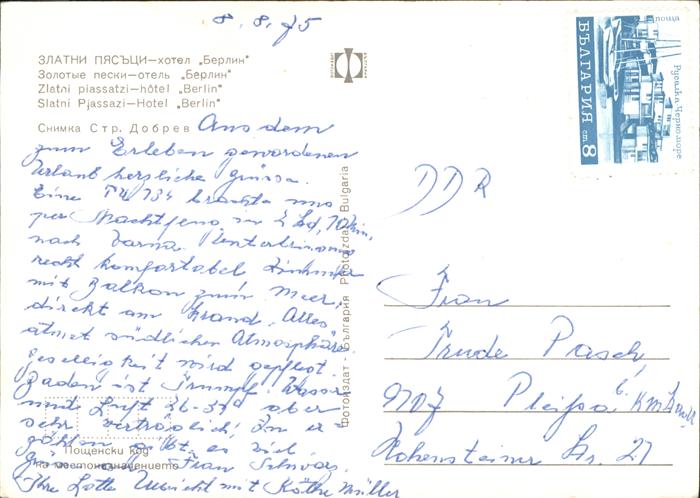 8. 8. 75
ЗЛАТНИ ПЯСЪЦИ—хотел „Берлин"
Золотые пески—отель „Берлин"
Zlatni piassatzi—hôtel „Berlin"
Slatni Pjassazi—Hotel „Berlin"
Снимка Стр. Добрев
Aus dem
zum Erleben gewordenen
Urlaub herzliche Grüsse.
Eine TU 134 brachte uns
per Nachtflug in 2 Std, 10 Min.
nach Varna. Unterbringung
recht komfortabel Zimmer
mit Balkon zum Meer,
direkt am Strand. Alles
atmet südlichen Atmosphäre.
Geselligkeit wird gepflegt.
Baden ist Trumpf. Wasser
und Luft 26-33° aber
sehr verträglich! Zu er-
zählen gibt es viel
Frau
Ihre Lotte Ulbricht mit Käthe Müller
Пощенски код
на местоназначението
Фотоиздат България Photoizdat Bulgaria
поща
БЪЛГАРИЯ
Русалка Черно море
ст. 8
DDR
Frau
Trude Pasch
9107 Pleißa b. Kmst
Hohensteiner Str. 27